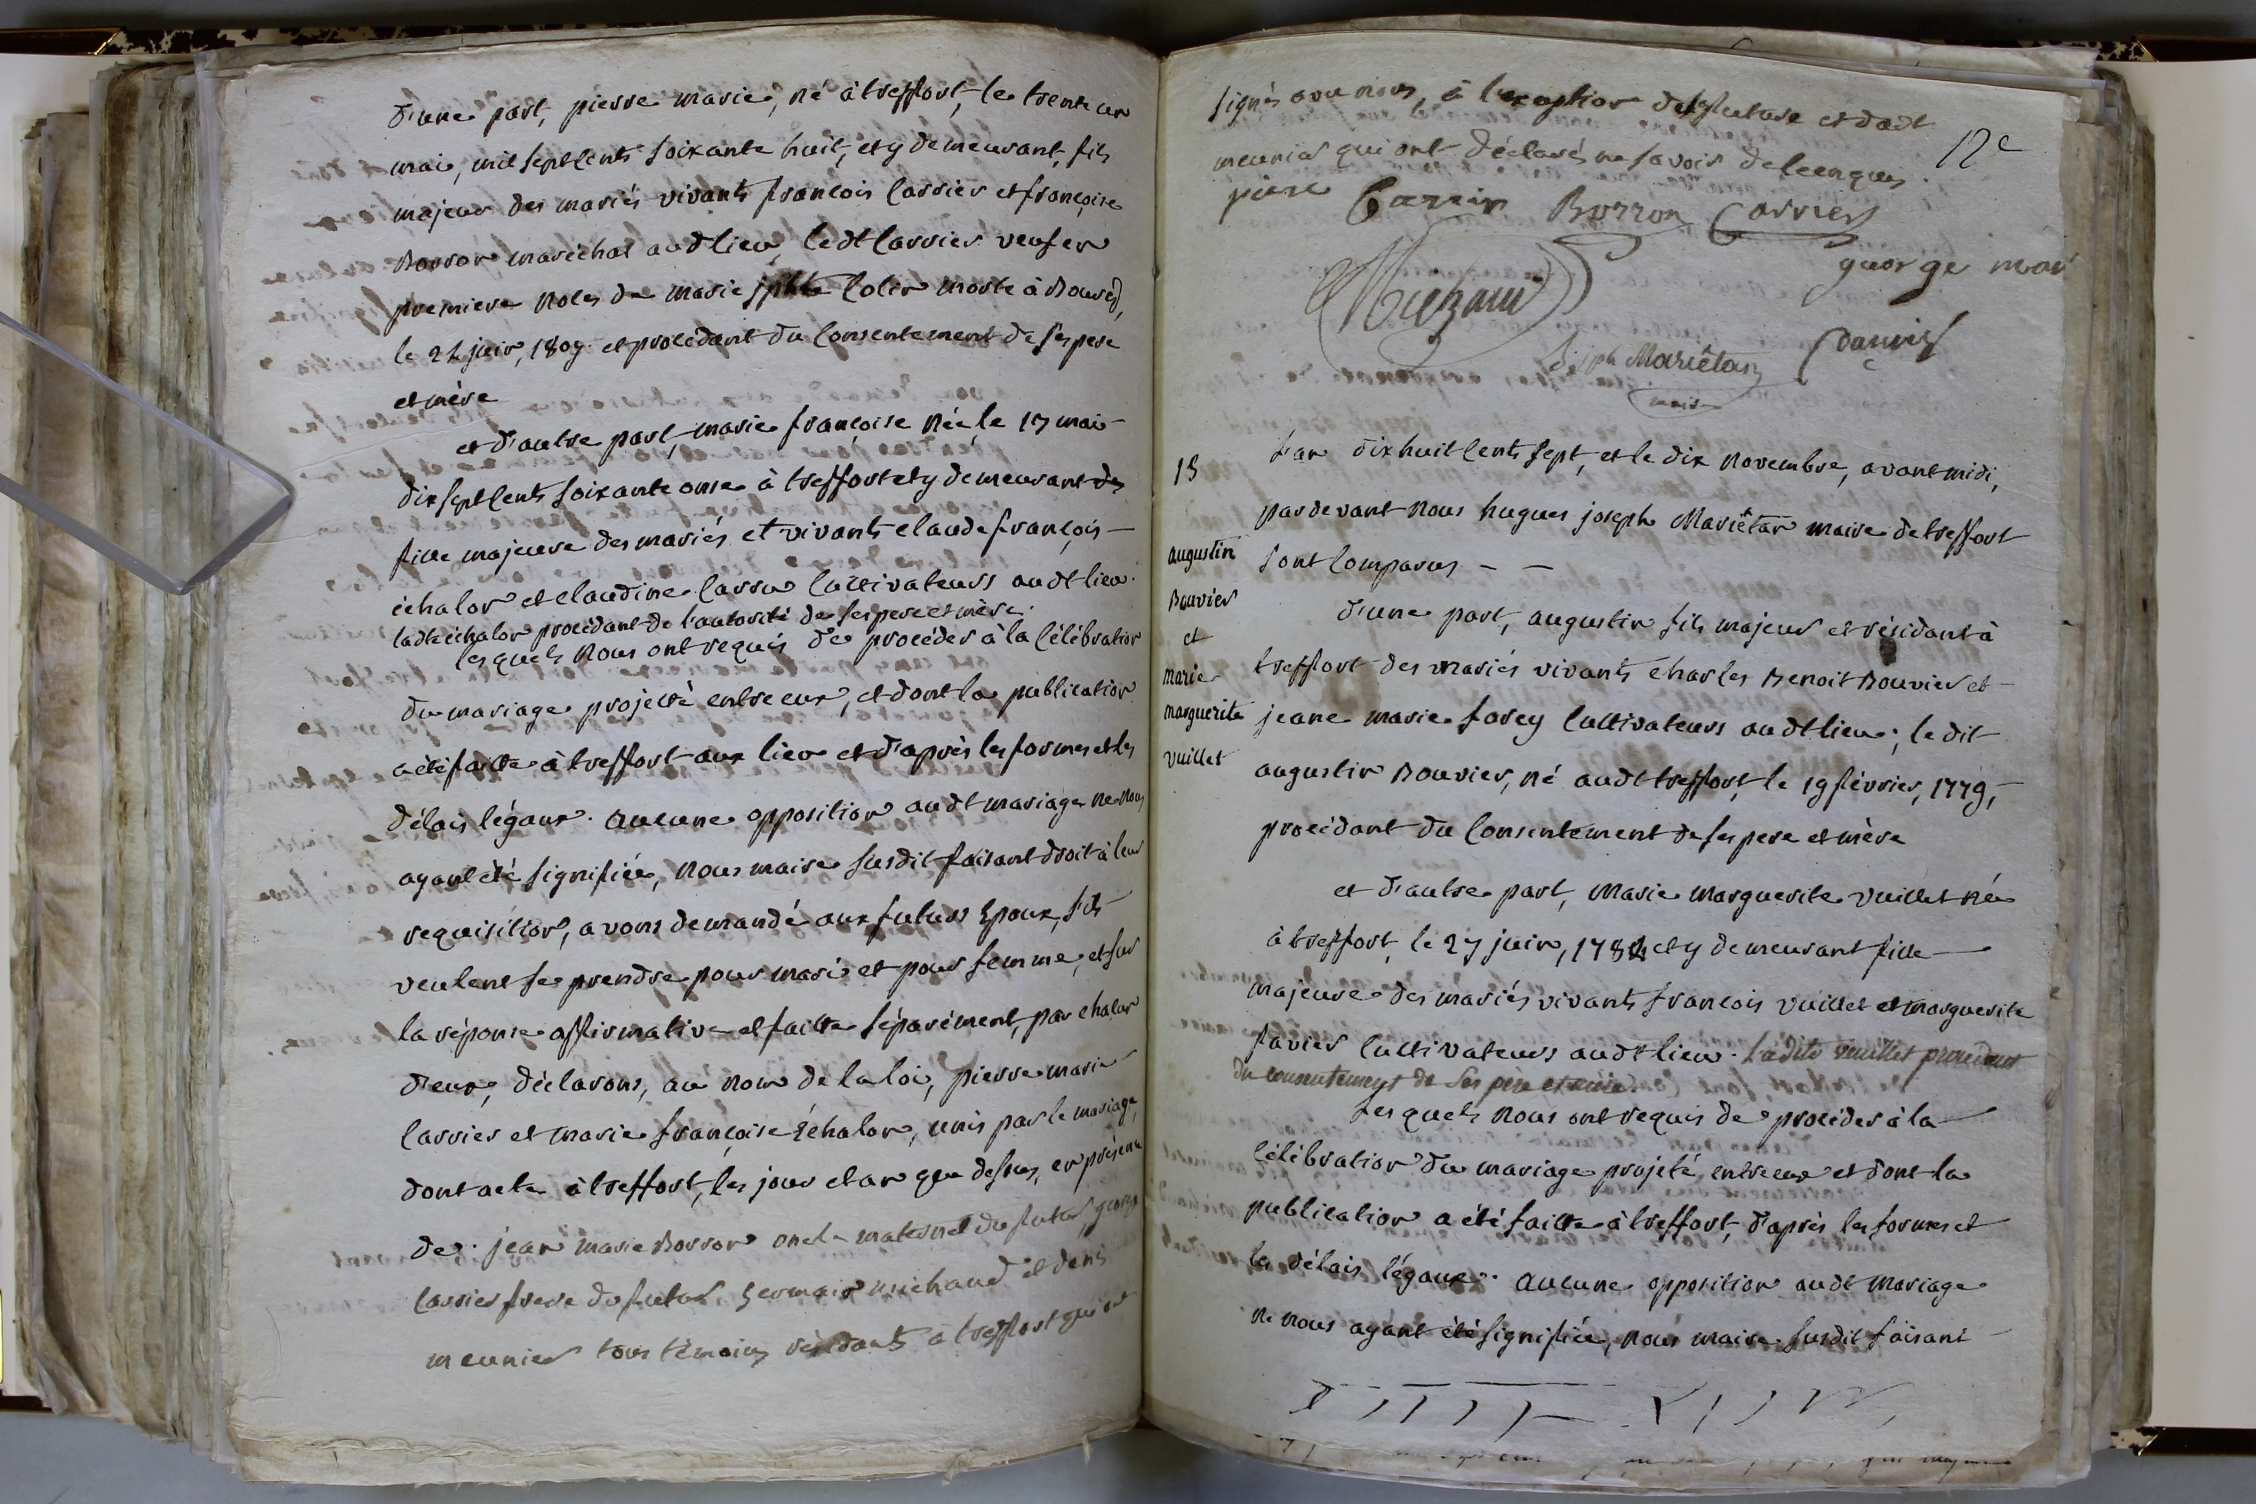 d'une part, pierre marie, né à treffort, le trente un
mai, mil sept cents soixante huit, et y demeurant, fils
majeur des mariés vivants françois Carrier et françoise
Borron maréchal audt lieu, ledt Carrier veuf en
premiere noces de marie jphte Colin morte à Bourg,
le 24 juin, 1809. et procédant du consentement de ses pere
et mère
et d'autre part, marie françoise née le 17 mai
dix sept cents soixante onse à treffort et y demeurant
fille majeure des mariés et vivants claude françois
échalon et claudine Carru cultivateurs audt lieu.
ladte échalon procédant de l'autorité de ses pere et mère.
lesquels nous ont requis de procéder à la célébration
du mariage projetté entre eux, et dont la publication
a été faitte à treffort aux lieu et d'après les formes et les
délais légaux. aucune opposition audt mariage ne nous
ayant été signifiée, nous maire susdit faisant droit à leur
requisition, avons demandé aux futurs Epoux, s'ils
veulent se prendre pour mari et pour femme, et sur
la réponse affirmative et faitte séparément, par chacun
d'eux, déclarons, au nom de la loi, pierre marie
Carrier et marie françoise Echalon, unis par le mariage,
dont acte à treffort, les jour et an que dessus, en présence
de jean marie Borron oncle maternel du futur, george
Carrier frere du futur, germain michaud et
meunier tous témoins résidants à treffort qui ont
signés avec nous, à l'exception de et dudt
meunier qui ont déclarés ne savoir de ce enquis.
12e
piere Carrier Borron Carrier
george mari
Michaud
Joseph Mariëtan
maire
13
augustin
Bouvier
et
marie
marguerite
vuillet
L'an dix huit cents sept, et le dix novembre, avant midi,
pardevant nous hugues joseph Mariëtan maire de treffort
sont comparus - -
d'une part, augustin fils majeur et résidant à
treffort des mariés vivants charles Benoit Bouvier et
jeane marie forey cultivateurs audt lieu; le dit
augustin Bouvier, né audt treffort, le 19 février, 1779,
procédant du consentement de ses pere et mère
et d'autre part, Marie Marguerite vuillet née
à treffort, le 27 juin, 1784 et y demeurant fille
majeure des mariés vivants françois vuillet et marguerite
favier cultivateurs audt lieu. Ladite vuillet procédant
du consentement de ses père et mère.
Lesquels nous ont requis de procéder à la
célébration du mariage projeté entre eux et dont la
publication a été faitte à treffort, d'après les formes et
la délais légaux. aucune opposition audt mariage
ne nous ayant été signifiée, nous maire susdit faisant